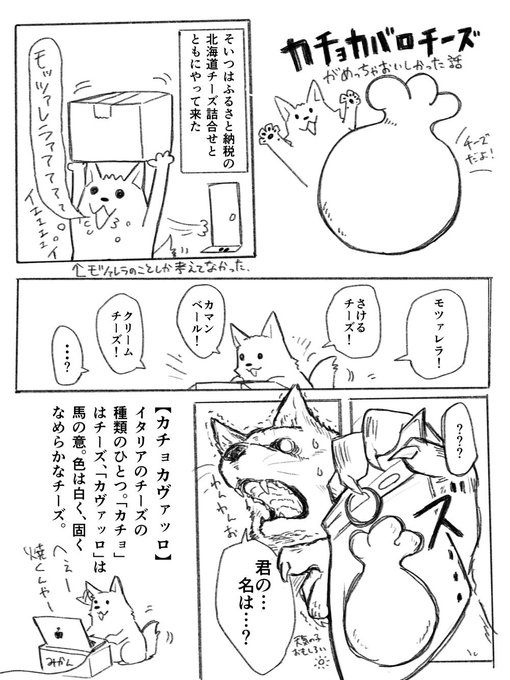 カチョカバロチーズ
がめっちゃおいしかった話
チーズ
だよ!
そいつはふるさと納税の
北海道チーズ詰合せと
ともにやって来た
モッツァレラァァァァァ
イェェェェ。ィ
↑モツァレラのことしか考えてなかった.
モツァレラ!
さける
チーズ!
カマン
ベール!
クリーム
チーズ!
…?
???
ズズ
わんわんお
君の…
名は…?
天気の子
おもしろい
【カチョカヴァッロ】
イタリアのチーズの
種類のひとつ。「カチョ」
はチーズ、「カヴァッロ」は
馬の意。色は白く、固く
なめらかなチーズ。
へぇー
焼くんやー
みかん